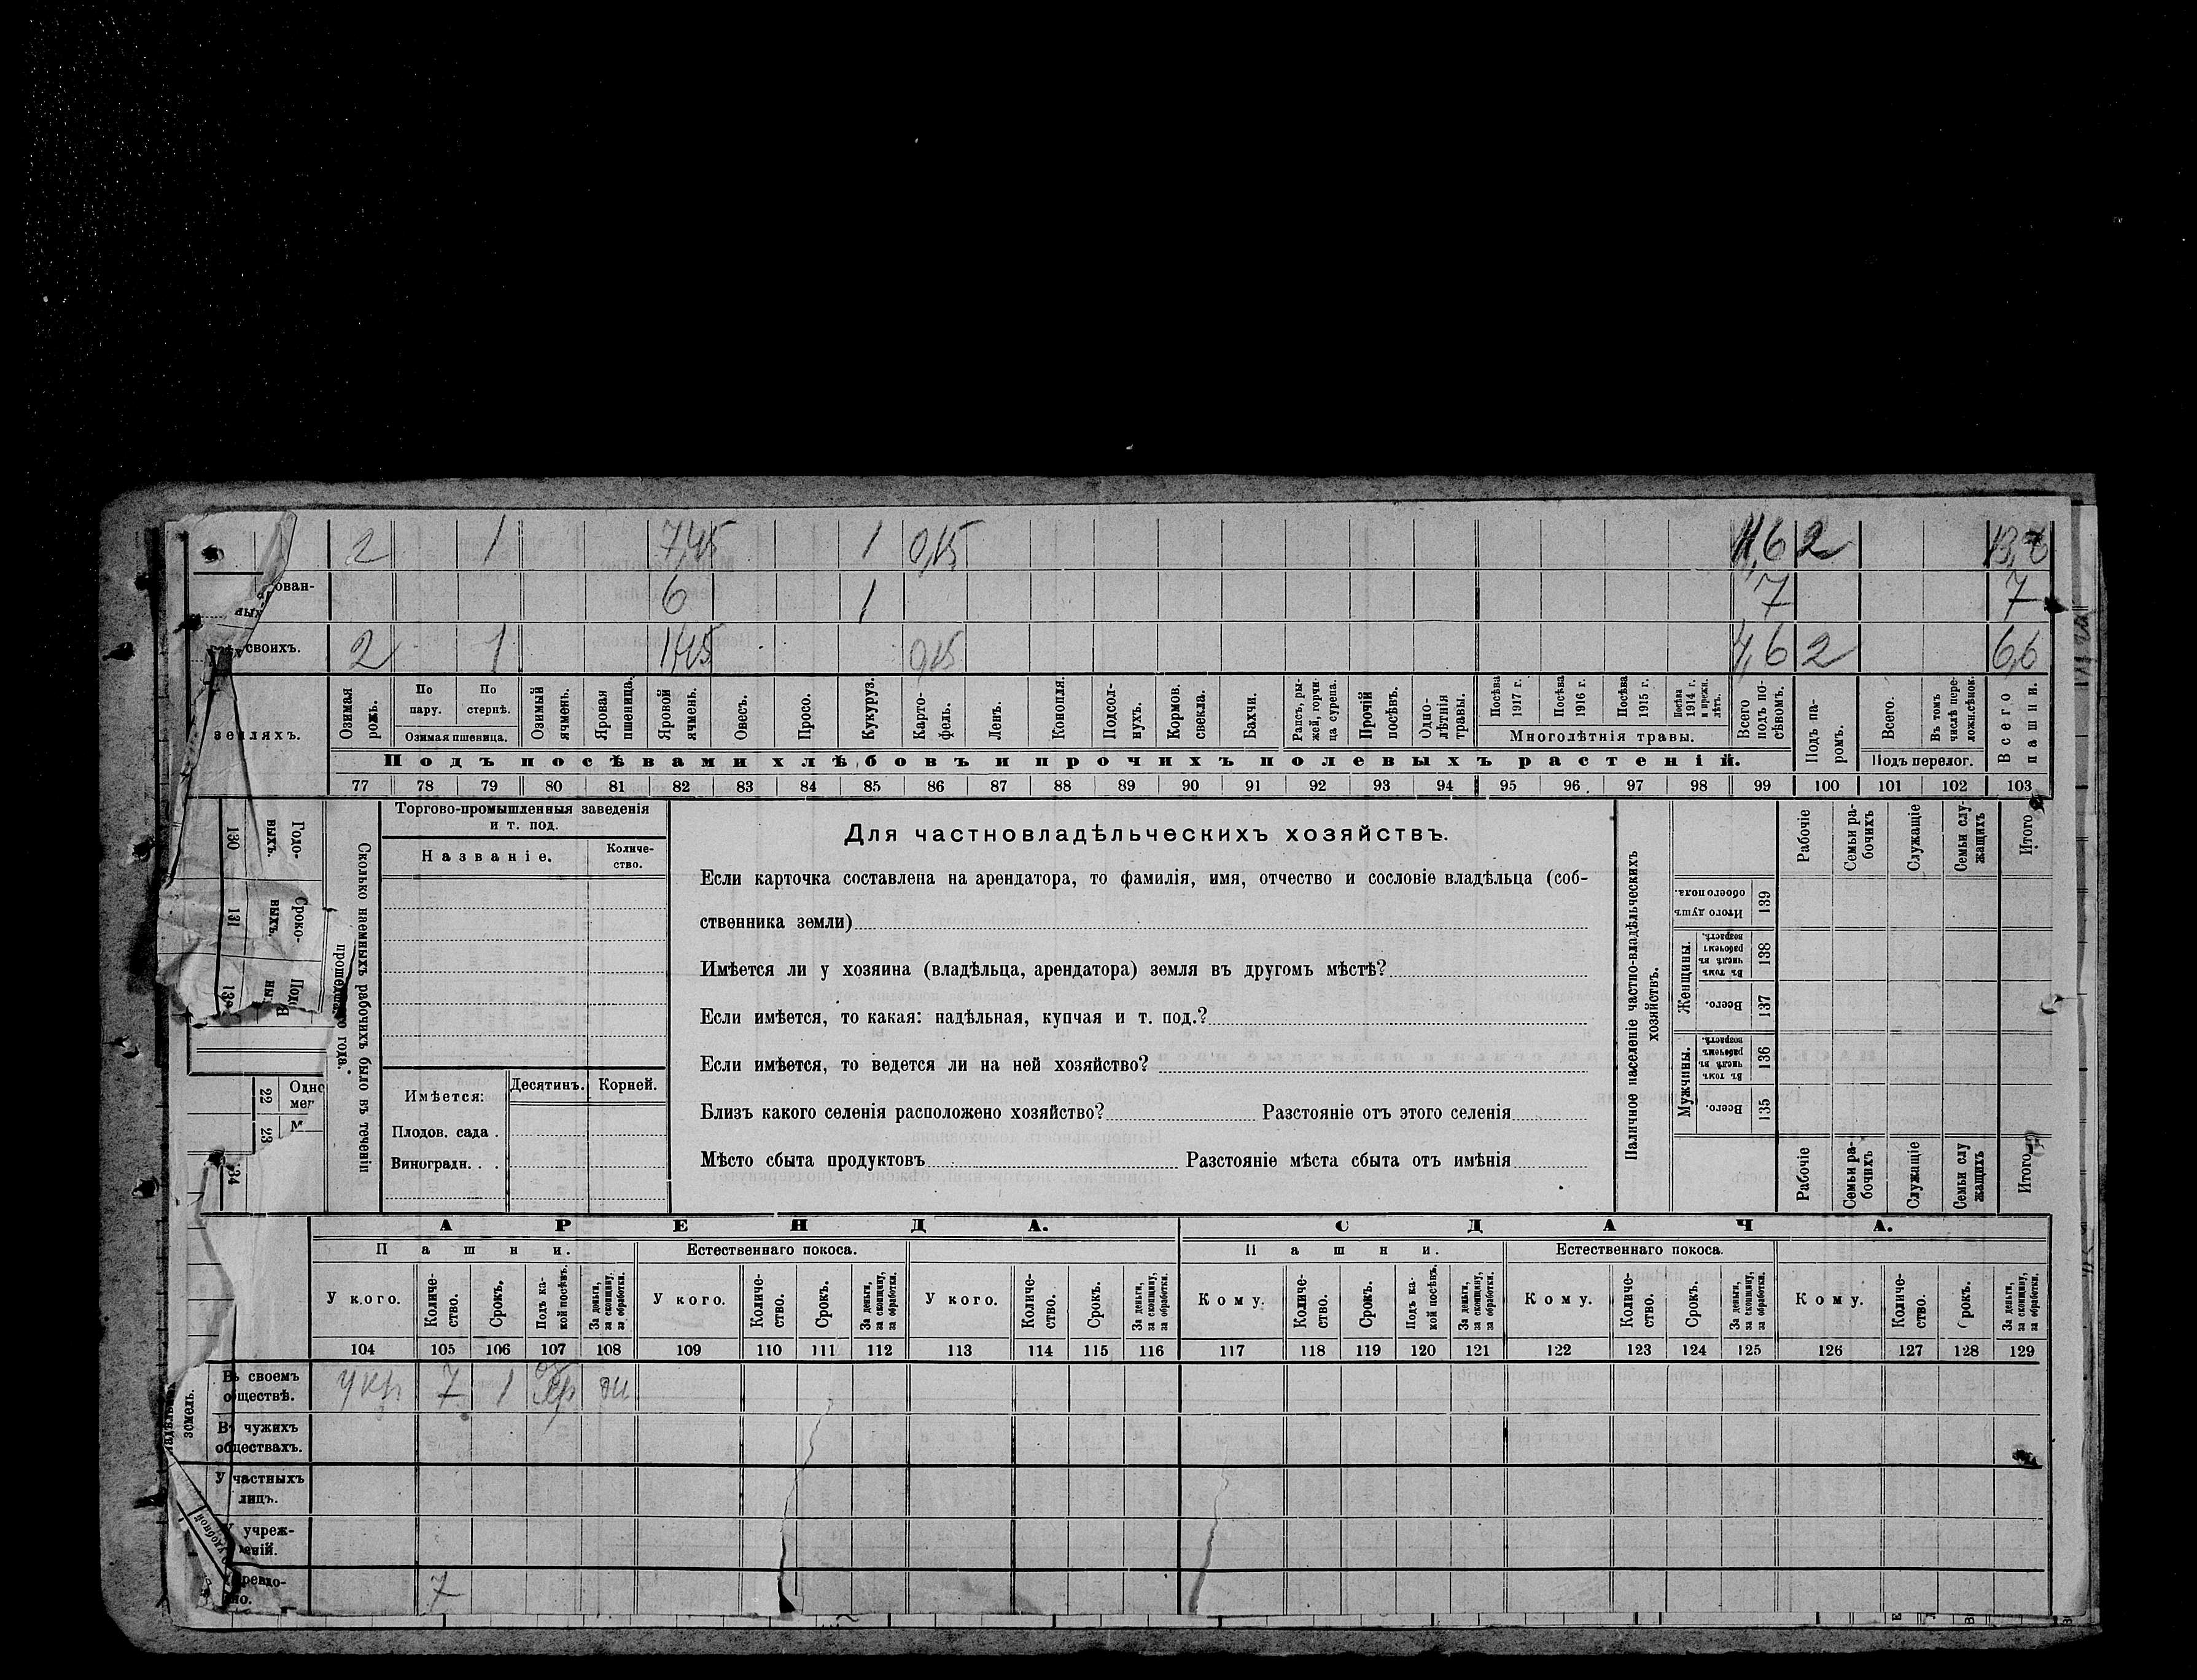 2 1 7,45 1 0,15 11,6 2 13,6
ован-
ныхъ 6 1 7 7
своихъ. 2 1 1,45 0,15 4,6 2 6,6
земляхъ.
Озимая рожь.
По пару.
По стернѣ.
Озимая пшеница.
Озимый ячмень.
Яровая пшеница.
Яровой ячмень.
Овесъ.
Просо.
Кукуруз.
Карто-
фель.
Ленъ.
Конопля.
Подсол-
нухъ.
Кормов. свекла.
Бахчи.
Рапсъ, ры-
жей, горчи-
ца сурепа.
Прочій посѣвъ.
Одно-
лѣтнія травы.
Посѣва 1917 г.
Посѣва 1916 г.
Посѣва 1915 г.
Посѣва 1914 г. и прежн. лѣтъ.
Многолѣтнія травы.
Всего подъ по-
сѣвомъ.
Подъ па-
ромъ.
Всего.
Въ томъ числѣ пере-
ложн.сѣнок.
Подъ перелог.
Всего пашни.
Подъ посѣвами хлѣбовъ и прочихъ полевыхъ растеній.
77 78 79 80 81 82 83 84 85 86 87 88 89 90 91 92 93 94 95 96 97 98 99 100 101 102 103
Годо-
выхъ.
130
Сроко-
выхъ.
131
Сколько наемныхъ рабочихъ было въ теченіи
прошедшаго года.
22 23
134
Торгово-промышленныя заведенія
и т. под.
Названіе.
Количе-
ство.
Имѣется: Десятинъ. Корней.
Плодов. сада .
Виноградн. . .
Для частновладѣльческихъ хозяйствъ.
Если карточка составлена на арендатора, то фамилія, имя, отчество и сословіе владѣльца (соб-
ственника земли)
Имѣется ли у хозяина (владѣльца, арендатора) земля въ другомъ мѣстѣ?
Если имѣется, то какая: надѣльная, купчая и т. под.?
Если имѣется, то ведется ли на ней хозяйство?
Близъ какого селенія расположено хозяйство? Разстояніе отъ этого селенія
Мѣсто сбыта продуктовъ Разстояніе мѣста сбыта отъ имѣнія
Наличное населеніе частно-владѣльческихъ
хозяйствъ.
Рабочіе
Семьи ра-
бочихъ
Служащіе
Семьи слу-
жащихъ
Итого
Итого душъ обоего пола. 139
Женщины.
Въ томъ числѣ въ рабочемъ возрастѣ. 138
Всего. 137
Мужчины.
Въ томъ числѣ въ рабочемъ возрастѣ. 136
Всего. 135
Рабочіе
Семьи ра-
бочихъ
Служащіе
Семьи слу
жащихъ
Итого
АРЕНДА. СДАЧА.
Пашни. Естественнаго покоса. Пашни. Естественнаго покоса.
У кого. Количе-
ство. Срокъ. Подъ ка-
кой посѣвъ. За деньги, за скопщину, за обработки. У кого. Количе-
ство. Срокъ. За деньги, за скопщину, за обработки. У кого. Количе-
ство. Срокъ. За деньги, за скопщину, за обработки. Кому. Количе-
ство. Срокъ. Подъ ка-
кой посѣвъ. За деньги, за скопщину, за обработки. Кому. Количе-
ство. Срокъ. За деньги, за скопщину, за обработки. Кому. Количе-
ство. рокъ. За деньги, за скопщину, за обработки.
104 105 106 107 108 109 110 111 112 113 114 115 116 117 118 119 120 121 122 123 124 125 126 127 128 129
земель.
Въ своемъ
обществѣ. у кр 7 1
Въ чужихъ
обществахъ.
У частныхъ
лицъ.
У учреж-
деній.
7